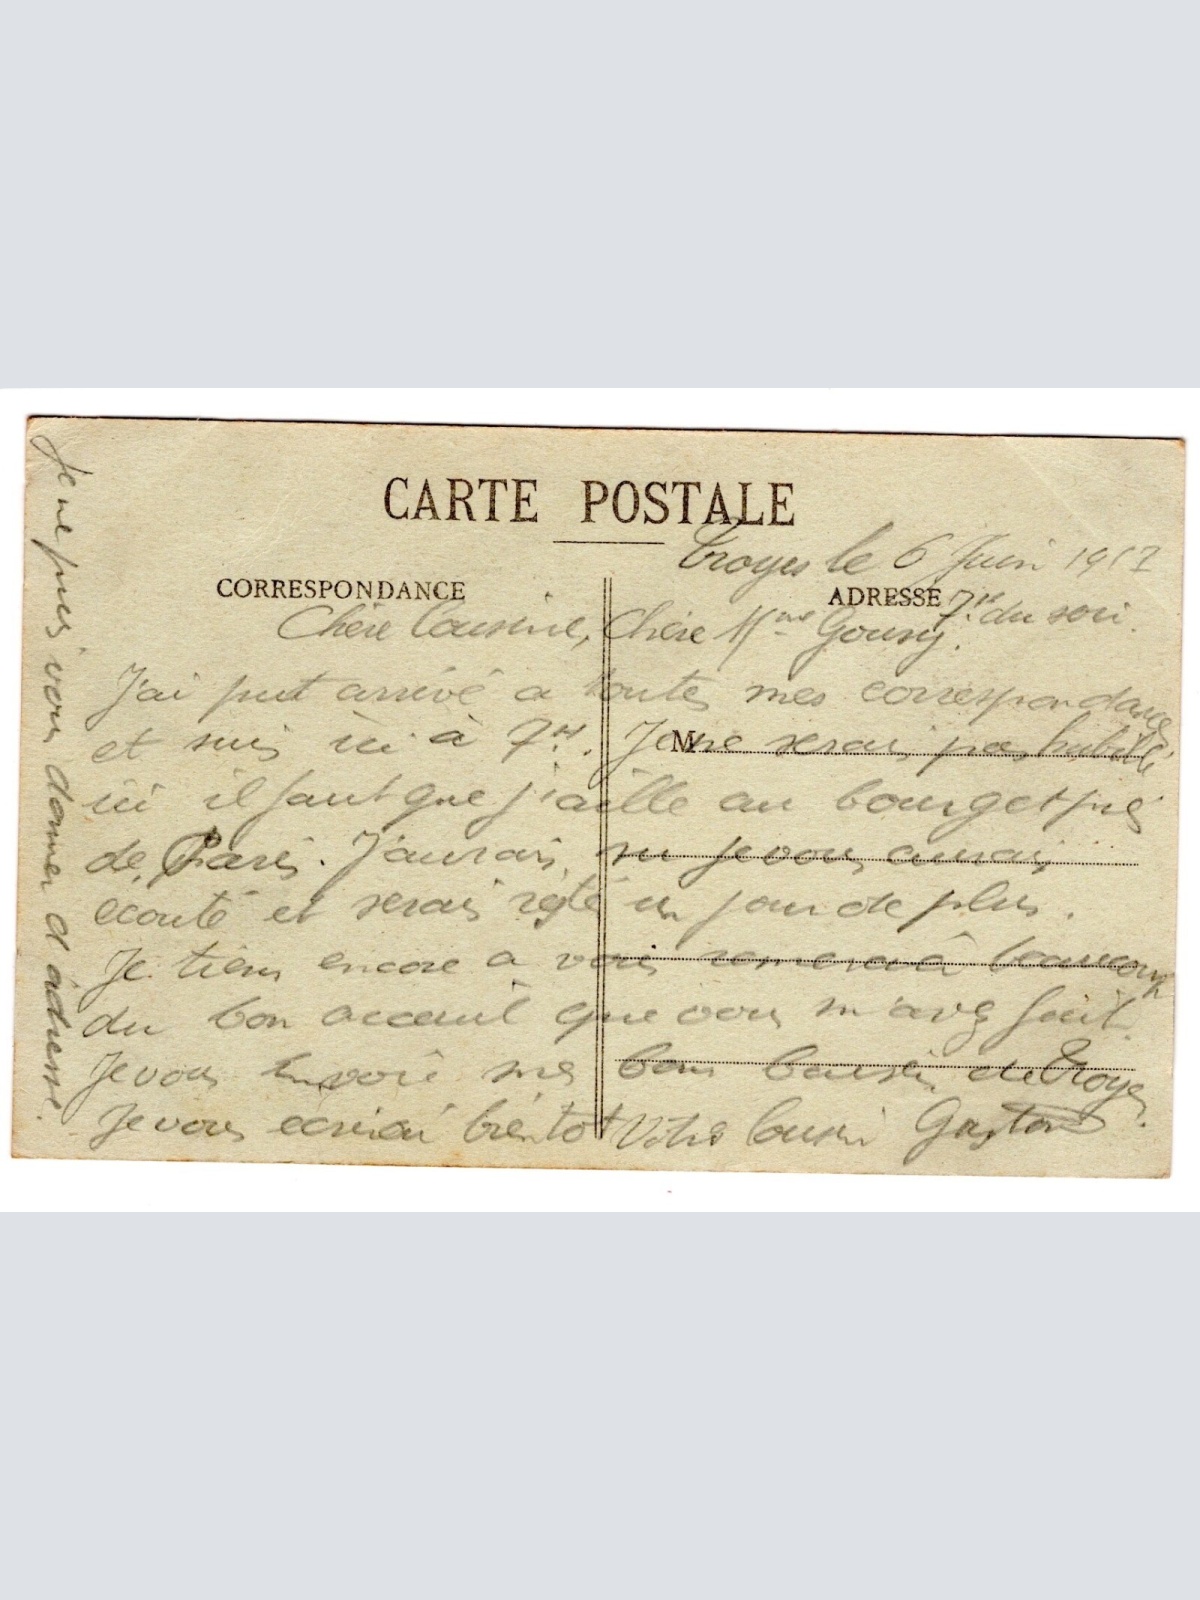 CARTE POSTALE
Troyes le 6 Juin 1917
CORRESPONDANCE
ADRESSE
7H du soir.
Chère Cousine, Chère Mme Gousy.
J'ai put arrivé a toutes mes correspondances
et suis ici à 7H. Je ne serais pas habillé
M
ici il faut que j'aille au bourget près
de Paris. J'aurais su je vous aurais
écouté et serais resté un jour de plus.
Je tiens encore a vous remercié beaucoup
du bon acceuil que vous m'avez fait.
Je vous envoie mes bons baisers de Troyes.
Je vous écrirai bientot Votre Cousin Gaston
Je ne puis vous donner d'adresse.